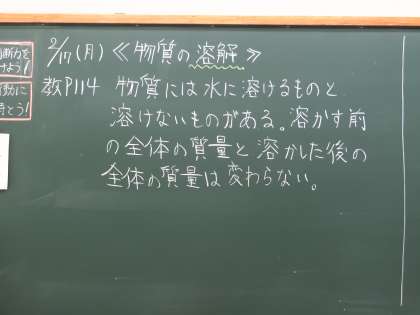 2/17(月)≪物質の溶解≫
教P114 物質には水に溶けるものと
溶けないものがある。溶かす前
の全体の質量と溶かした後の
全体の質量は変わらない。